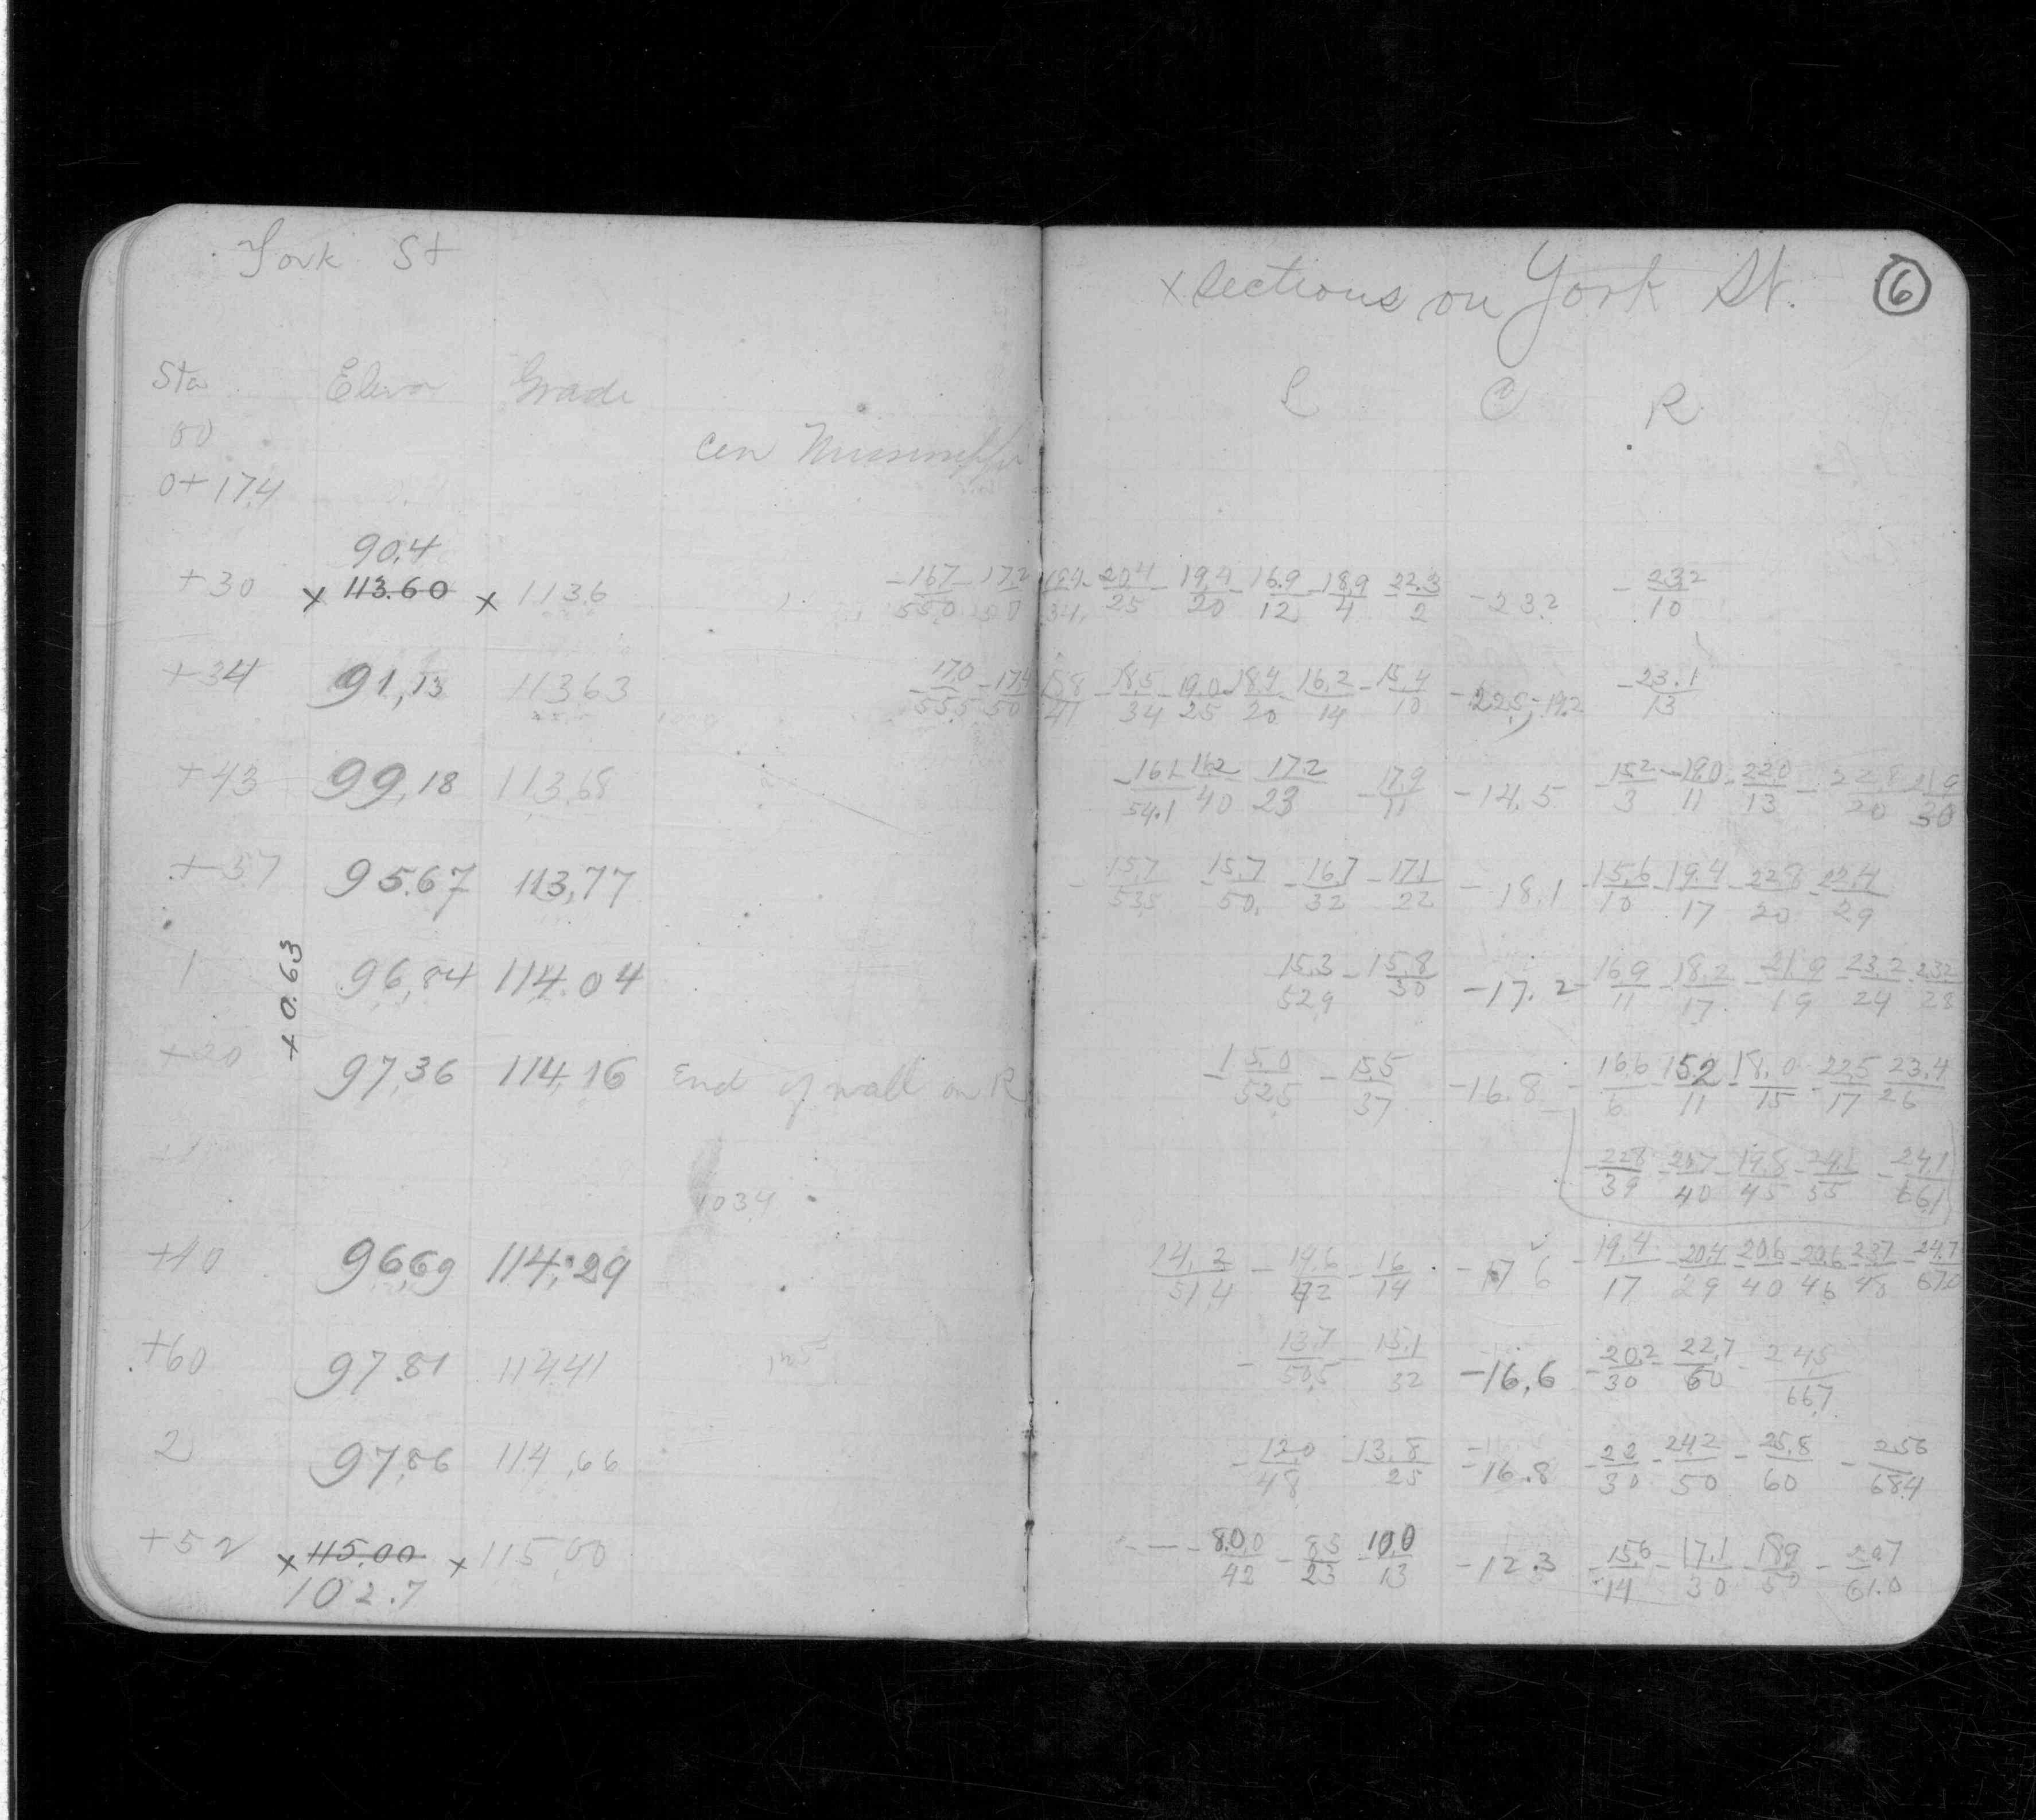 York St
Sta Eleva Grade
00 Cen
0+17.4
90.4
+30 x 113.60 x 113.6
+34 91,13 113.63
+43 99,18 113.68
+57 95.67 113,77
1 96,84 114.04
+0.63
+20 97,36 114,16 End of wall on R
1034
+40 96,69 114,29
+60 97.81 114.41
2 97,86 114,66
+52 x 115.00 x 115,00
102.7
x Sections on York St. 6
L C R
-16.7/55.0 -17.2/50 19.4/34 -20.4/25 -19.4/20 -16.9/12 -18.9/4 -22.3/2 -23.2 -23.2/10
-17.0/55.5 -17.4/50 15.8/41 -18.5/34 -19.0/25 -18.4/20 -16.2/14 -15.4/10 -22.5,-19.2 -23.1/13
-16.1/54.1 16.2/40 17.2/23 -17.9/11 -14.5 -15.2/3 -19.0/11 -22.0/13 -22.8/20 21.9/30
-15.7/53.5 -15.7/50. -16.7/32 -17.1/22 -18.1 -15.6/10 -19.4/17 -22.8/20 -22.4/29
15.3/52.9 -15.8/30 -17.2 -16.9/11 -18.2/17 -21.9/19 -23.2/24 -23.2/28
-15.0/52.5 -15.5/37 -16.8 -16.6/6 -15.2/11 -18.0/15 -22.5/17 23.4/26
-22.8/39 -23.7/40 -19.8/45 -24.1/55 -24.1/66.1
14.2/51.4 -14.6/42 -16/14 -17.6 -19.4/17 -20.4/29 -20.6/40 -20.6/46 -23.7/48 -24.7/67.0
-13.7/50.5 -15.1/32 -16,6 -20.2/30 -22.7/60 -24.5/66.7
-12.0/48 -13.8/25 -16.8 -22/30 -24.2/50 -25.8/60 -25.6/68.4
-8.0,0/42 -8.5/23 -10.0/13 -12.3 -15.6/14 -17.1/30 -18.9/50 -20.7/61.0